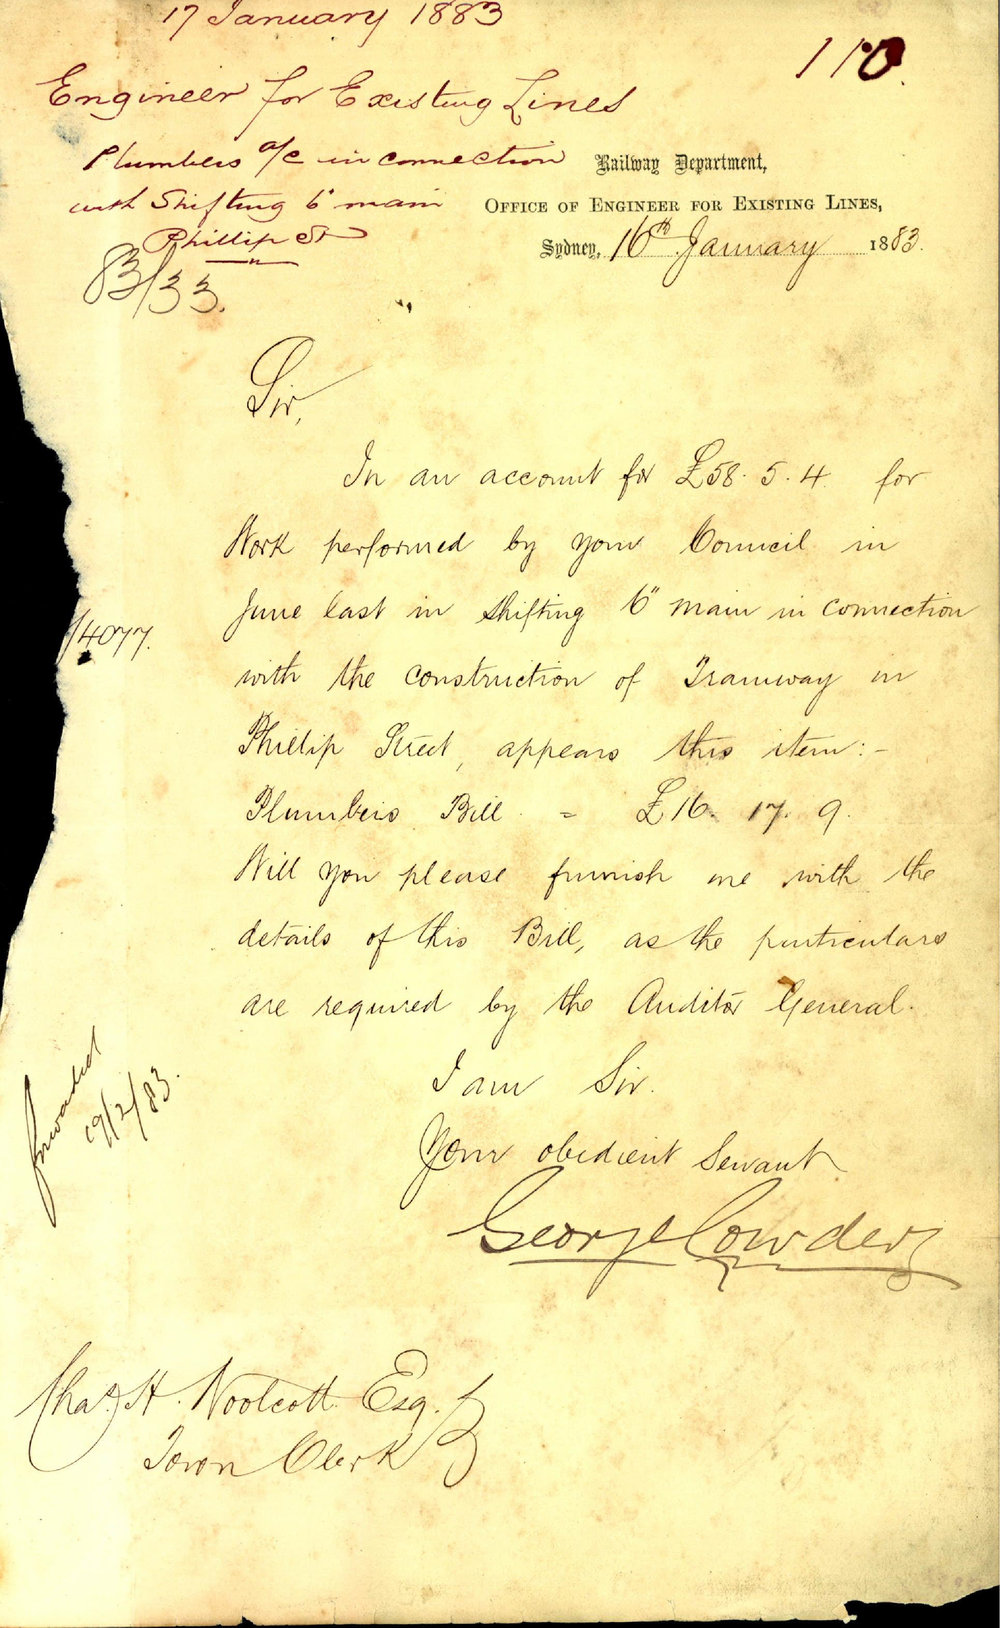 17 January 1883
110
Engineer for Existing Lines
Plumbers a/c in connection
with Shifting 6" main
Phillip St
83/33.
Railway Department,
OFFICE OF ENGINEER FOR EXISTING LINES,
Sydney, 16th January 1883.
Sir,
In an account for £58. 5. 4 for
Work performed by your Council in
June last in shifting 6" main in connection
/4077.
with the construction of Tramway in
Phillip Street, appears this item:-
Plumbers Bill = £16. 17. 9.
Will you please furnish me with the
details of this Bill, as the particulars
are required by the Auditor General.
I am Sir.
Your obedient Servant
George Cowdery
forwarded
19/2/83.
Chas. H. Woolcott Esq.
Town Clerk